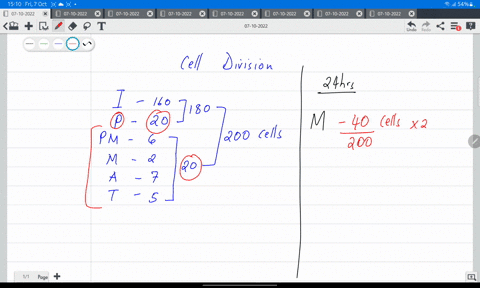 15:10 Fri, 7 Oct
54%
07-10-2022 07-10-2022 07-10-2022 07-10-2022 07-10-2022 07-10-2022 07-10-2022 07-10-2022
07-10-2022
Undo Redo
Cell Division
I - 160
P - 20
180
PM - 6
M - 2
A - 7
T - 5
20
200 cells
24hrs
M - 40 cells x 2
200
1/1 Page +